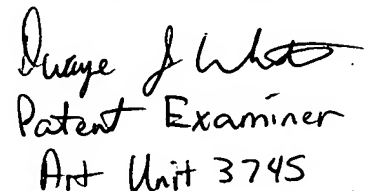 Dwayne J White
Patent Examiner
Art Unit 3745